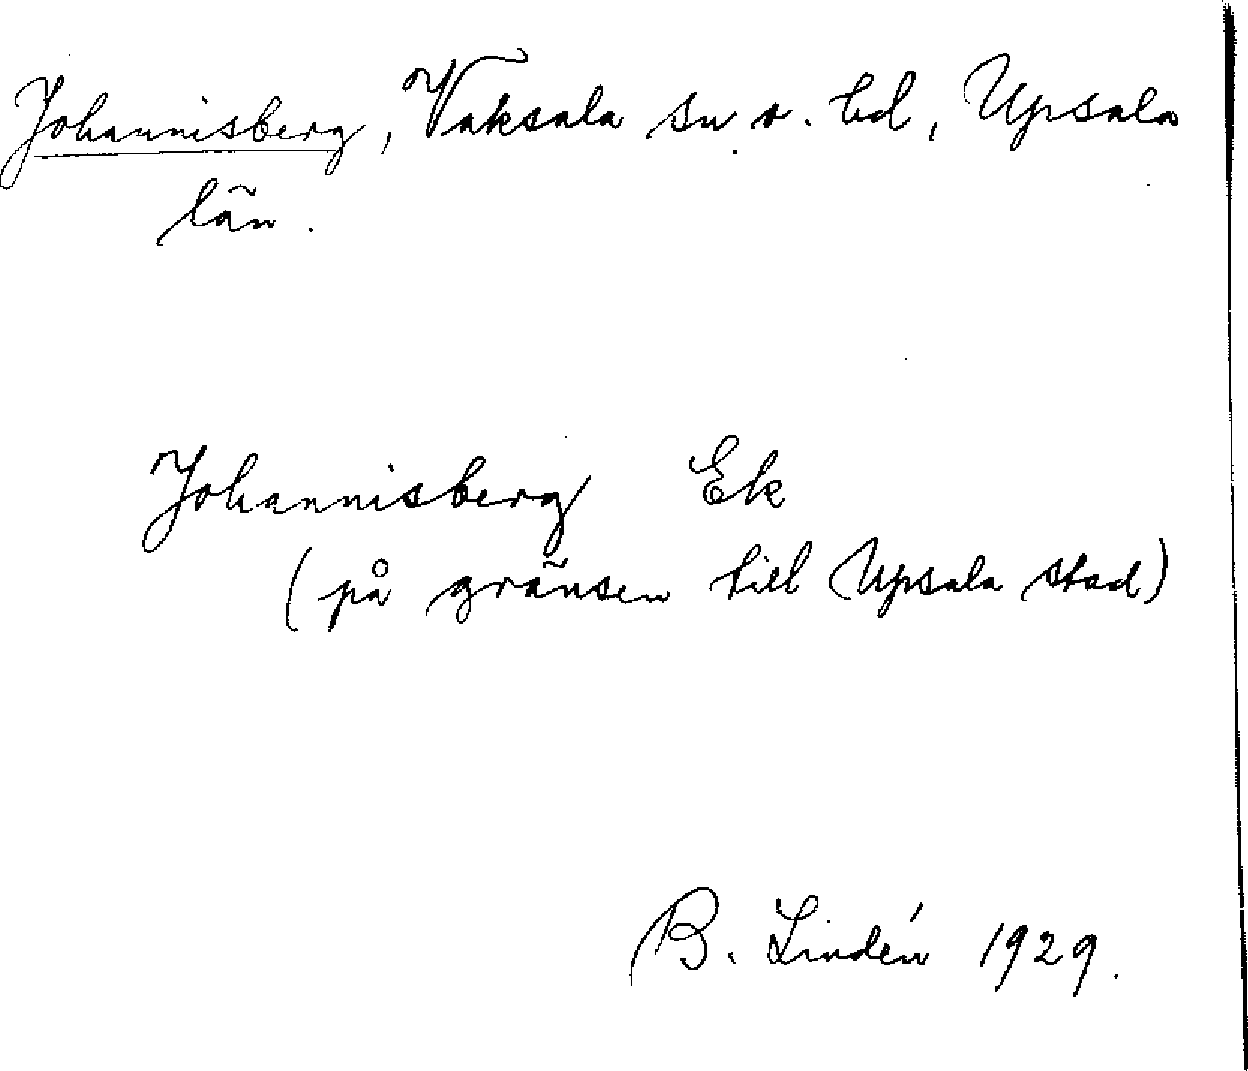 Johannisberg, Vaksala sn. o. hd, Upsala
län.
Johannisberg Ek
(på gränsen till Upsala stad)
B. Lindén 1929.